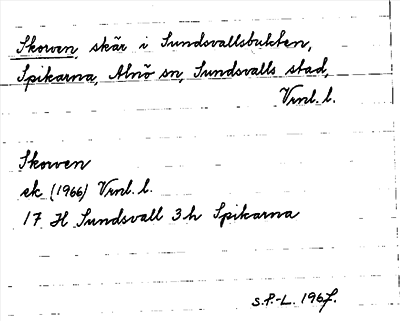 Skorven, skär i Sundsvallsbukten,
Spikarna, Alnö sn, Sundsvalls stad,
Vrnl. l.
Skorven
ek (1966) Vrnl. l.
17 H Sundsvall 3h Spikarna
S.P.-L. 1967.